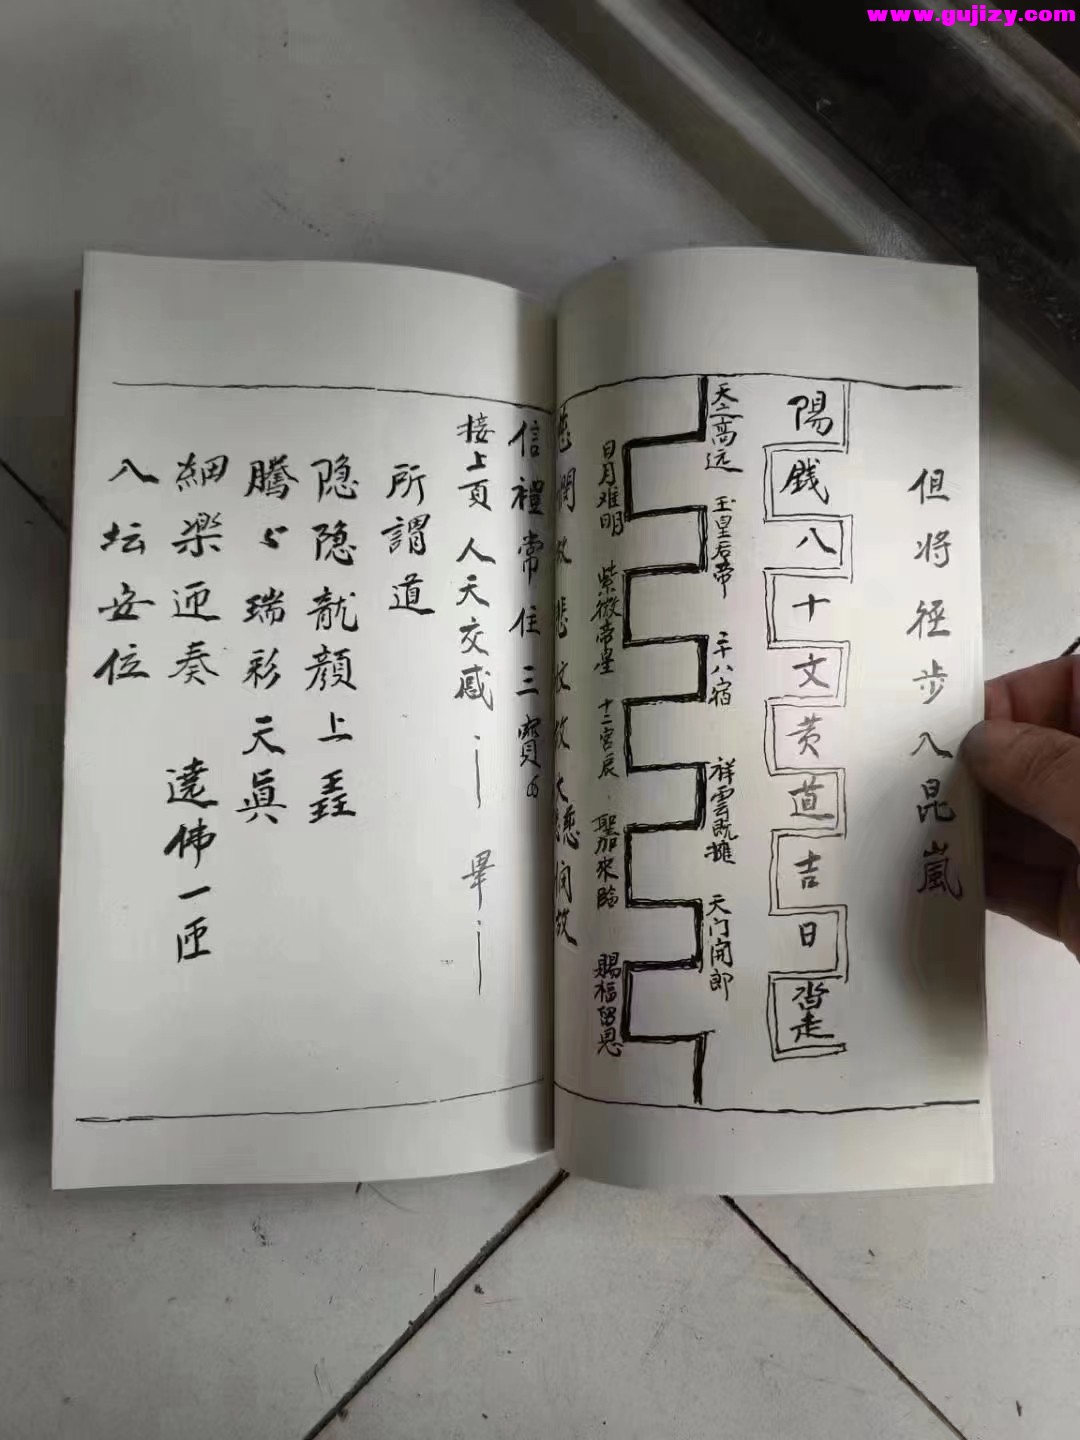 www.gujizy.com
但将徑步入昆嵐
陽錢八十文黄道吉日
天之高远 玉皇后帝 二十八宿 祥雲既擁 天门開郎
日月难明 紫微帝星 十二宫辰 聖加來臨 賜福留恩
信禮常住三寳
接上頁 人天交感 畢
所謂道
隐隐龍顔上
騰々瑞彩天眞
細楽迎奏 遶佛一匝
入坛安位